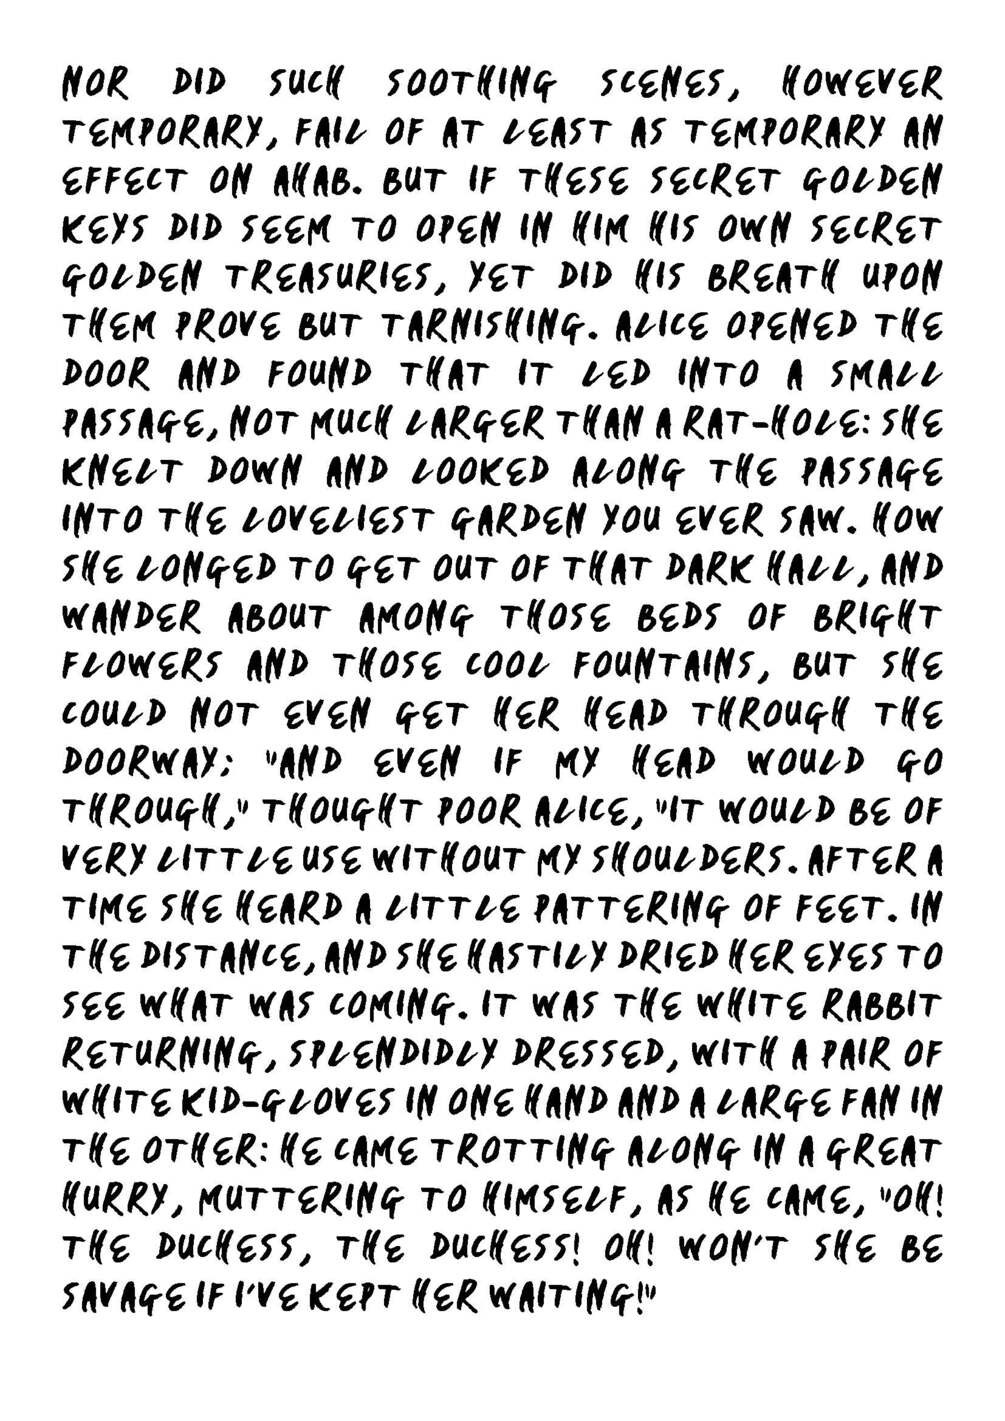 NOR DID SUCH SOOTHING SCENES, HOWEVER
TEMPORARY, FAIL OF AT LEAST AS TEMPORARY AN
EFFECT ON AHAB. BUT IF THESE SECRET GOLDEN
KEYS DID SEEM TO OPEN IN HIM HIS OWN SECRET
GOLDEN TREASURIES, YET DID HIS BREATH UPON
THEM PROVE BUT TARNISHING. ALICE OPENED THE
DOOR AND FOUND THAT IT LED INTO A SMALL
PASSAGE, NOT MUCH LARGER THAN A RAT-HOLE: SHE
KNELT DOWN AND LOOKED ALONG THE PASSAGE
INTO THE LOVELIEST GARDEN YOU EVER SAW. HOW
SHE LONGED TO GET OUT OF THAT DARK HALL, AND
WANDER ABOUT AMONG THOSE BEDS OF BRIGHT
FLOWERS AND THOSE COOL FOUNTAINS, BUT SHE
COULD NOT EVEN GET HER HEAD THROUGH THE
DOORWAY; "AND EVEN IF MY HEAD WOULD GO
THROUGH," THOUGHT POOR ALICE, "IT WOULD BE OF
VERY LITTLE USE WITHOUT MY SHOULDERS. AFTER A
TIME SHE HEARD A LITTLE PATTERING OF FEET. IN
THE DISTANCE, AND SHE HASTILY DRIED HER EYES TO
SEE WHAT WAS COMING. IT WAS THE WHITE RABBIT
RETURNING, SPLENDIDLY DRESSED, WITH A PAIR OF
WHITE KID-GLOVES IN ONE HAND AND A LARGE FAN IN
THE OTHER: HE CAME TROTTING ALONG IN A GREAT
HURRY, MUTTERING TO HIMSELF, AS HE CAME, "OH!
THE DUCHESS, THE DUCHESS! OH! WON'T SHE BE
SAVAGE IF I'VE KEPT HER WAITING!"